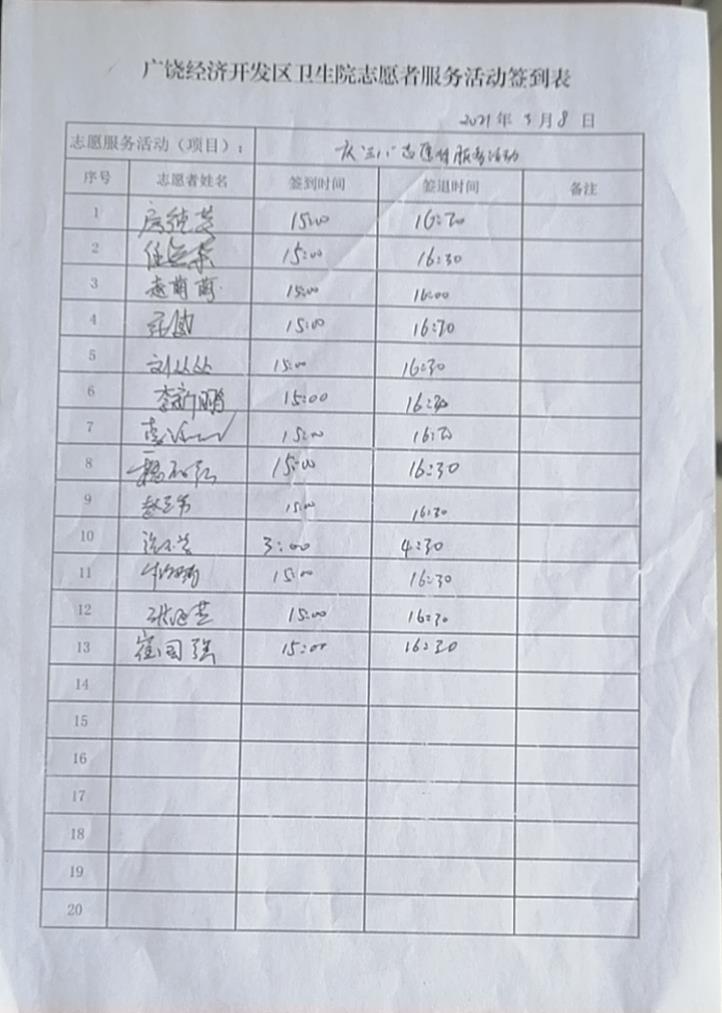 广饶经济开发区卫生院志愿者服务活动签到表
2021年3月8日
志愿服务活动（项目）： 庆"三八"志愿者服务活动
序号 志愿者姓名 签到时间 签退时间 备注
1 15:00
2 15:00 16:30
3 赵萌萌 15:00 16:00
4 15:00 16:30
5 刘丛丛 15:00 16:30
6 李新鹏 15:00 16:30
7 15:00
8 15:00 16:30
9 15:00 16:30
10 3:00 4:30
11 15:00 16:30
12 15:00 16:30
13 崔国强 15:00 16:30
14
15
16
17
18
19
20